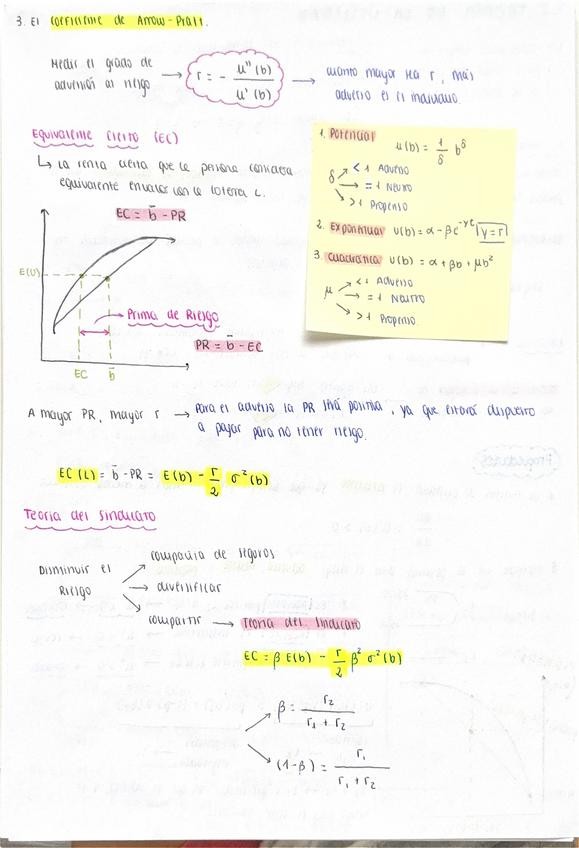 3. El coeficiente de Arrow-Pratt.
Medir el grado de
adversión al riesgo → r = - u''(b) / u'(b) → cuanto mayor sea r, más
adverso es el individuo.
Equivalente cierto (EC)
↳ La renta cierta que la persona considera
equivalente en valor con la lotería L.
1. Potencial
u(b) = 1/δ b^δ
δ
< 1 Adverso
= 1 Neutro
> 1 Propenso
2. Exponencial u(b) = α - βe^-γc γ = r
3. Cuadrática u(b) = α + βb + μb²
μ
< 1 Adverso
= 1 Neutro
> 1 Propenso
EC = b̄ - PR
E(U)
Prima de Riesgo
PR = b̄ - EC
EC b̄
A mayor PR, mayor r → Para el adverso la PR será positiva, ya que estará dispuesto
a pagar para no tener riesgo.
EC(L) = b̄ - PR = E(b) - r/2 σ²(b)
Teoría del Sindicato
Disminuir el
Riesgo
compañía de seguros
diversificar
compartir → Teoría del Sindicato
EC = β E(b) - r/2 β² σ²(b)
β = r₂ / r₁ + r₂
(1-β) = r₁ / r₁ + r₂